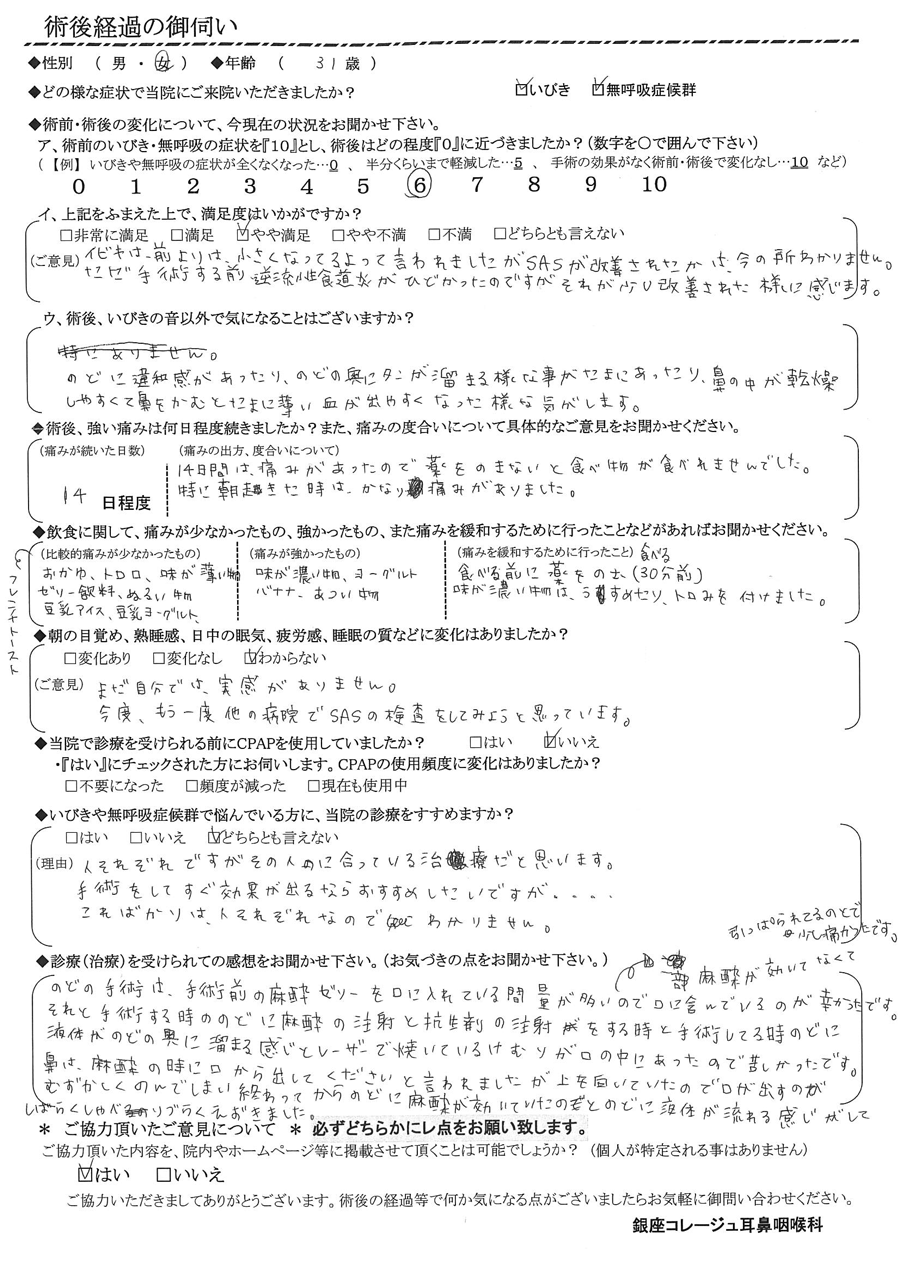 術後経過の御伺い
◆性別 ( 男 ・ 女 ) ◆年齢 ( 31 歳 )
◆どの様な症状で当院にご来院いただきましたか? ☑いびき ☑無呼吸症候群
◆術前・術後の変化について、今現在の状況をお聞かせ下さい。
ア、術前のいびき・無呼吸の症状を『10』とし、術後はどの程度『0』に近づきましたか?(数字を〇で囲んで下さい)
(【例】いびきや無呼吸の症状が全くなくなった…0 、 半分くらいまで軽減した…5 、 手術の効果がなく術前・術後で変化なし…10 など)
0 1 2 3 4 5 6 7 8 9 10
イ、上記をふまえた上で、満足度はいかがですか?
□非常に満足 □満足 ☑やや満足 □やや不満 □不満 □どちらとも言えない
(ご意見) イビキは、前よりは、小さくなってるよって言われましたがSASが改善されたかは、今の所わかりません。
ただ手術する前 逆流性食道炎がひどかったのですがそれが少し改善された様に感じます。
ウ、術後、いびきの音以外で気になることはございますか?
特にありません。
のどに違和感があったり、のどの奥にタンが溜まる様な事がたまにあったり、鼻の中が乾燥
しやすくて鼻をかむとたまに薄い血が出やすくなった様な気がします。
◆術後、強い痛みは何日程度続きましたか?また、痛みの度合いについて具体的なご意見をお聞かせください。
(痛みが続いた日数) (痛みの出方、度合いについて)
14日間は、痛みがあったので薬をのまないと食べ物が食べれませんでした。
14 日程度 特に朝起きた時は、かなり痛みがありました。
◆飲食に関して、痛みが少なかったもの、強かったもの、また痛みを緩和するために行ったことなどがあればお聞かせください。
(比較的痛みが少なかったもの) (痛みが強かったもの) (痛みを緩和するために行ったこと) 食べる
おかゆ、トロロ、味が薄い物 味が濃い物、ヨーグルト 食べる前に薬をのむ(30分前)
ゼリー飲料、ぬるい物 バナナ、あつい物 味が濃い物は、うすめたり、トロみを付けました。
豆乳アイス、豆乳ヨーグルト
フレンチトースト
◆朝の目覚め、熟睡感、日中の眠気、疲労感、睡眠の質などに変化はありましたか?
□変化あり □変化なし ☑わからない
(ご意見) まだ自分では、実感がありません。
今度、もう一度他の病院でSASの検査をしてみようと思っています。
◆当院で診療を受けられる前にCPAPを使用していましたか? □はい ☑いいえ
・『はい』にチェックされた方にお伺いします。CPAPの使用頻度に変化はありましたか?
□不要になった □頻度が減った □現在も使用中
◆いびきや無呼吸症候群で悩んでいる方に、当院の診療をすすめますか?
□はい □いいえ ☑どちらとも言えない
(理由) 人それぞれですがその人めに合っている治療だと思います。
手術をしてすぐ効果が出るならおすすめしたいですが、....
こればかりは、人それぞれなので わかりません。
引っぱられてるのとで
少し痛かったです。
◆診療(治療)を受けられての感想をお聞かせ下さい。(お気づきの点をお聞かせ下さい。)
部麻酔が効いてなくて
のどの手術は、手術前の麻酔ゼリーを口に入れている間量が多いので口に含んでいるのが辛かったです。
それと手術する時ののどに麻酔の注射と抗生剤の注射をする時と手術してる時のどに
液体がのどの奥に溜まる感じとレーザーで焼いているけむりが口の中にあったので苦しかったです。
鼻は、麻酔の時に口から出してくださいと言われましたが上を向いていたので口が出すのが
むずかしくのんでしまい終わってからのどに麻酔が効いていたのとのどに液体が流れる感じがして
しばらくしゃべるのつらくておきました。
* ご協力頂いたご意見について * 必ずどちらかにレ点をお願い致します。
ご協力頂いた内容を、院内やホームページ等に掲載させて頂くことは可能でしょうか? (個人が特定される事はありません)
☑はい □いいえ
ご協力いただきましてありがとうございます。術後の経過等で何か気になる点がございましたらお気軽に御問い合わせください。
銀座コレージュ耳鼻咽喉科